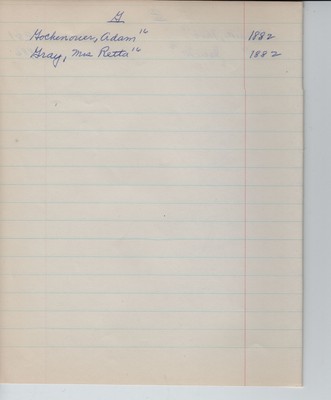 G
Gochenouer, Adam 16 1882
Gray, Mrs Retta 16 1882